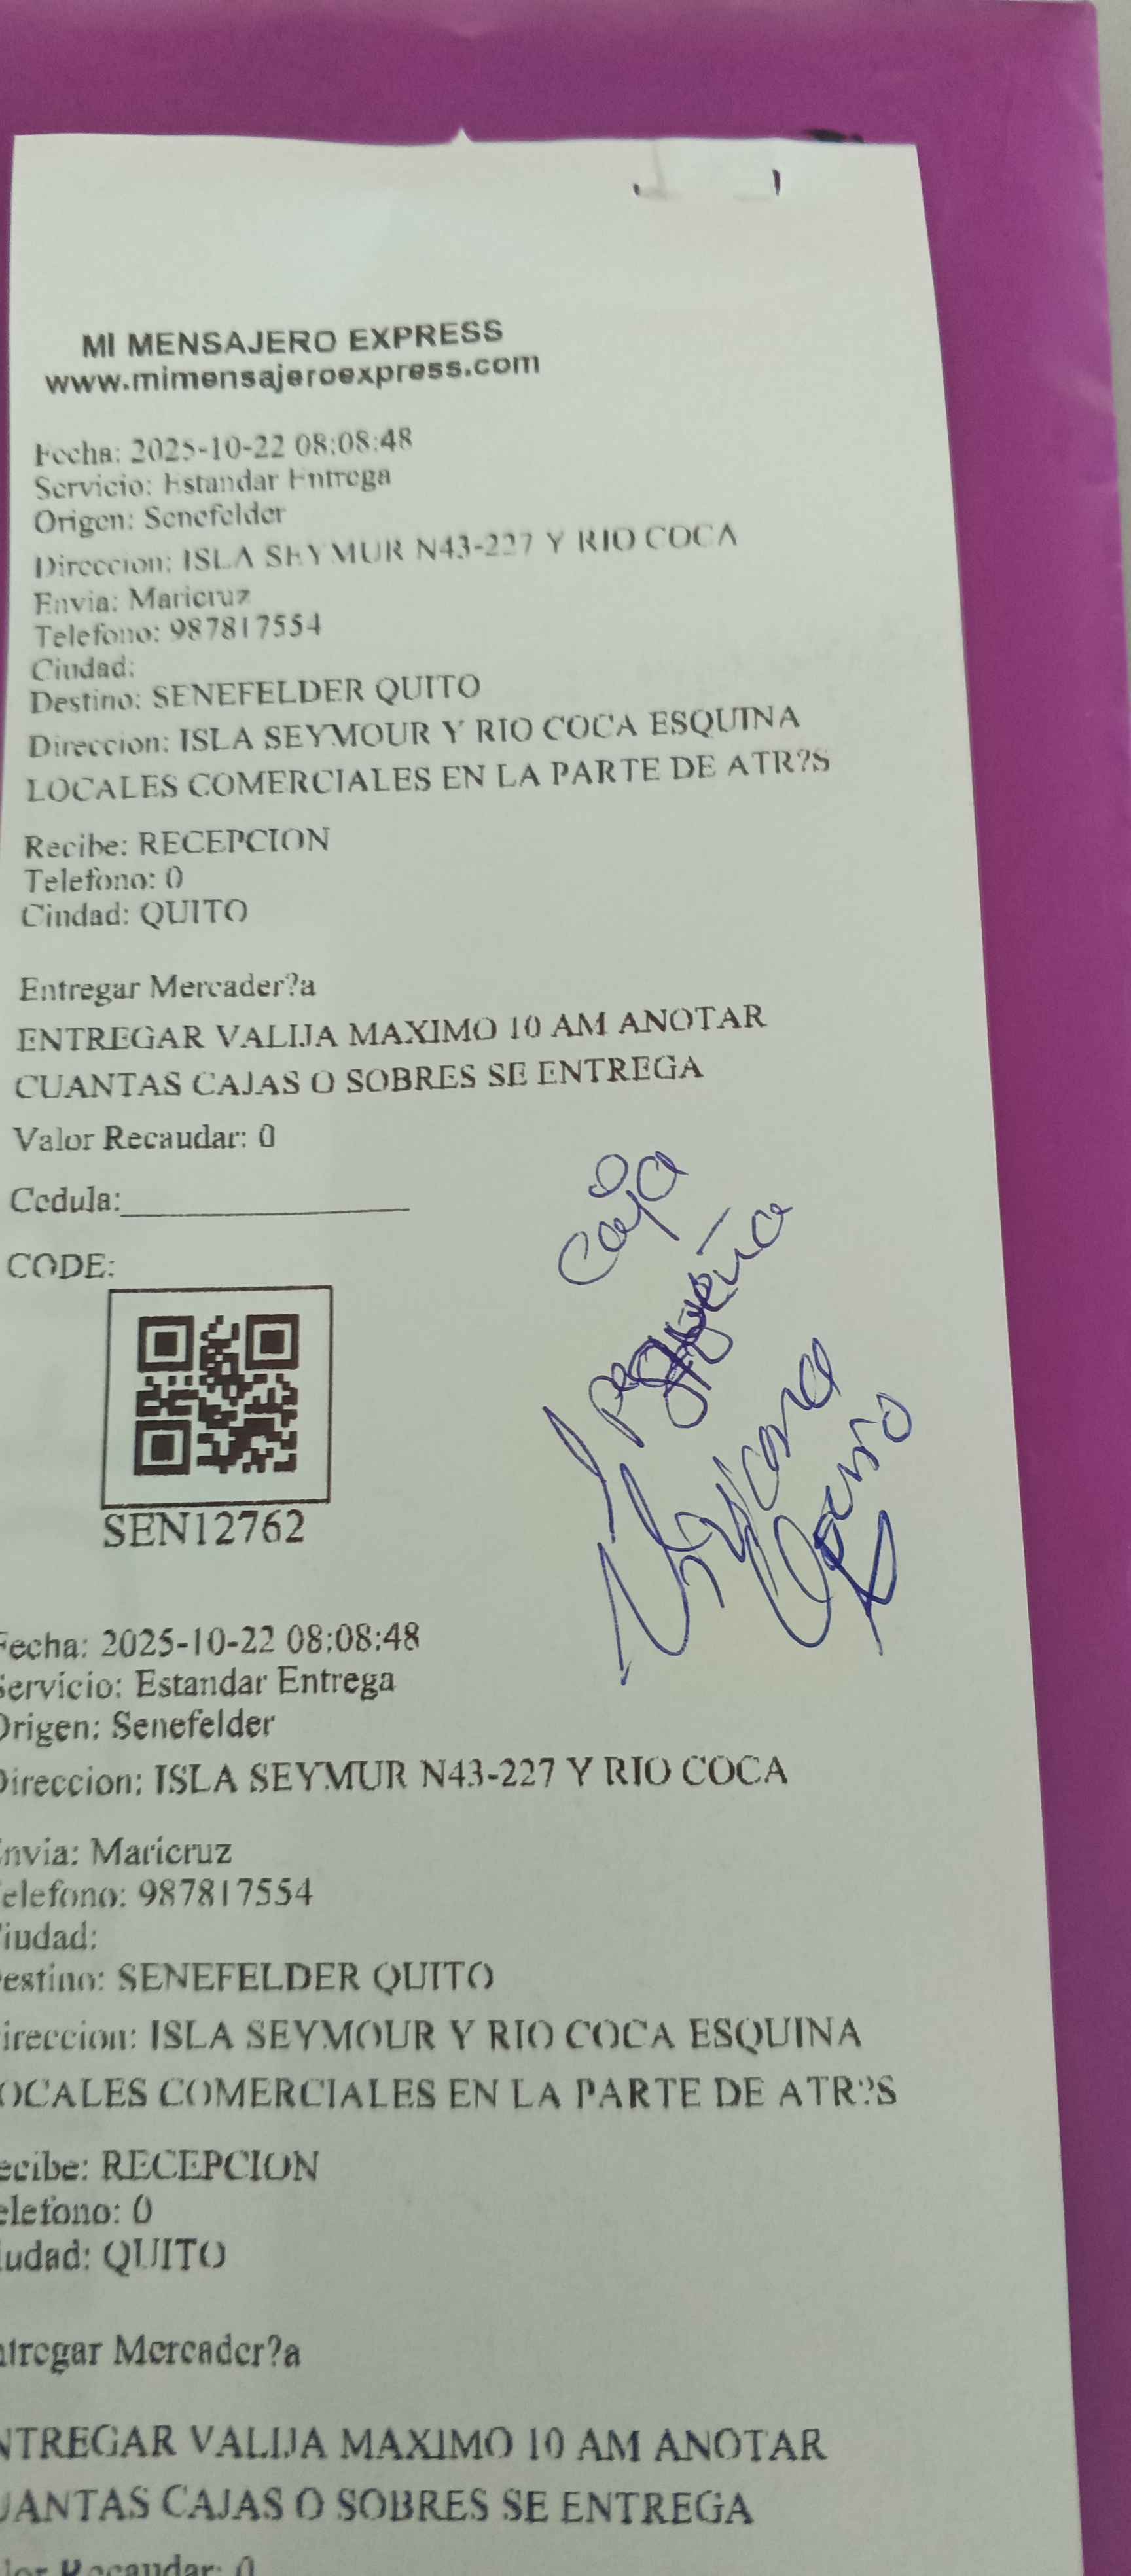 MI MENSAJERO EXPRESS
www.mimensajeroexpress.com
Fecha: 2025-10-22 08:08:48
Servicio: Estandar Entrega
Origen: Senefelder
Direccion: ISLA SEYMUR N43-227 Y RIO COCA
Envia: Maricruz
Telefono: 987817554
Ciudad:
Destino: SENEFELDER QUITO
Direccion: ISLA SEYMOUR Y RIO COCA ESQUINA
LOCALES COMERCIALES EN LA PARTE DE ATR?S
Recibe: RECEPCION
Telefono: 0
Ciudad: QUITO
Entregar Mercader?a
ENTREGAR VALIJA MAXIMO 10 AM ANOTAR
CUANTAS CAJAS O SOBRES SE ENTREGA
Valor Recaudar: 0
Cedula:
CODE:
SEN12762
Caja
pequeña
Fecha: 2025-10-22 08:08:48
Servicio: Estandar Entrega
Origen: Senefelder
Direccion: ISLA SEYMUR N43-227 Y RIO COCA
nvia: Maricruz
elefono: 987817554
iudad:
estino: SENEFELDER QUITO
ireccion: ISLA SEYMOUR Y RIO COCA ESQUINA
OCALES COMERCIALES EN LA PARTE DE ATR?S
ecibe: RECEPCION
elefono: 0
iudad: QUITO
ntregar Mercader?a
NTREGAR VALIJA MAXIMO 10 AM ANOTAR
UANTAS CAJAS O SOBRES SE ENTREGA
lor Recaudar: 0